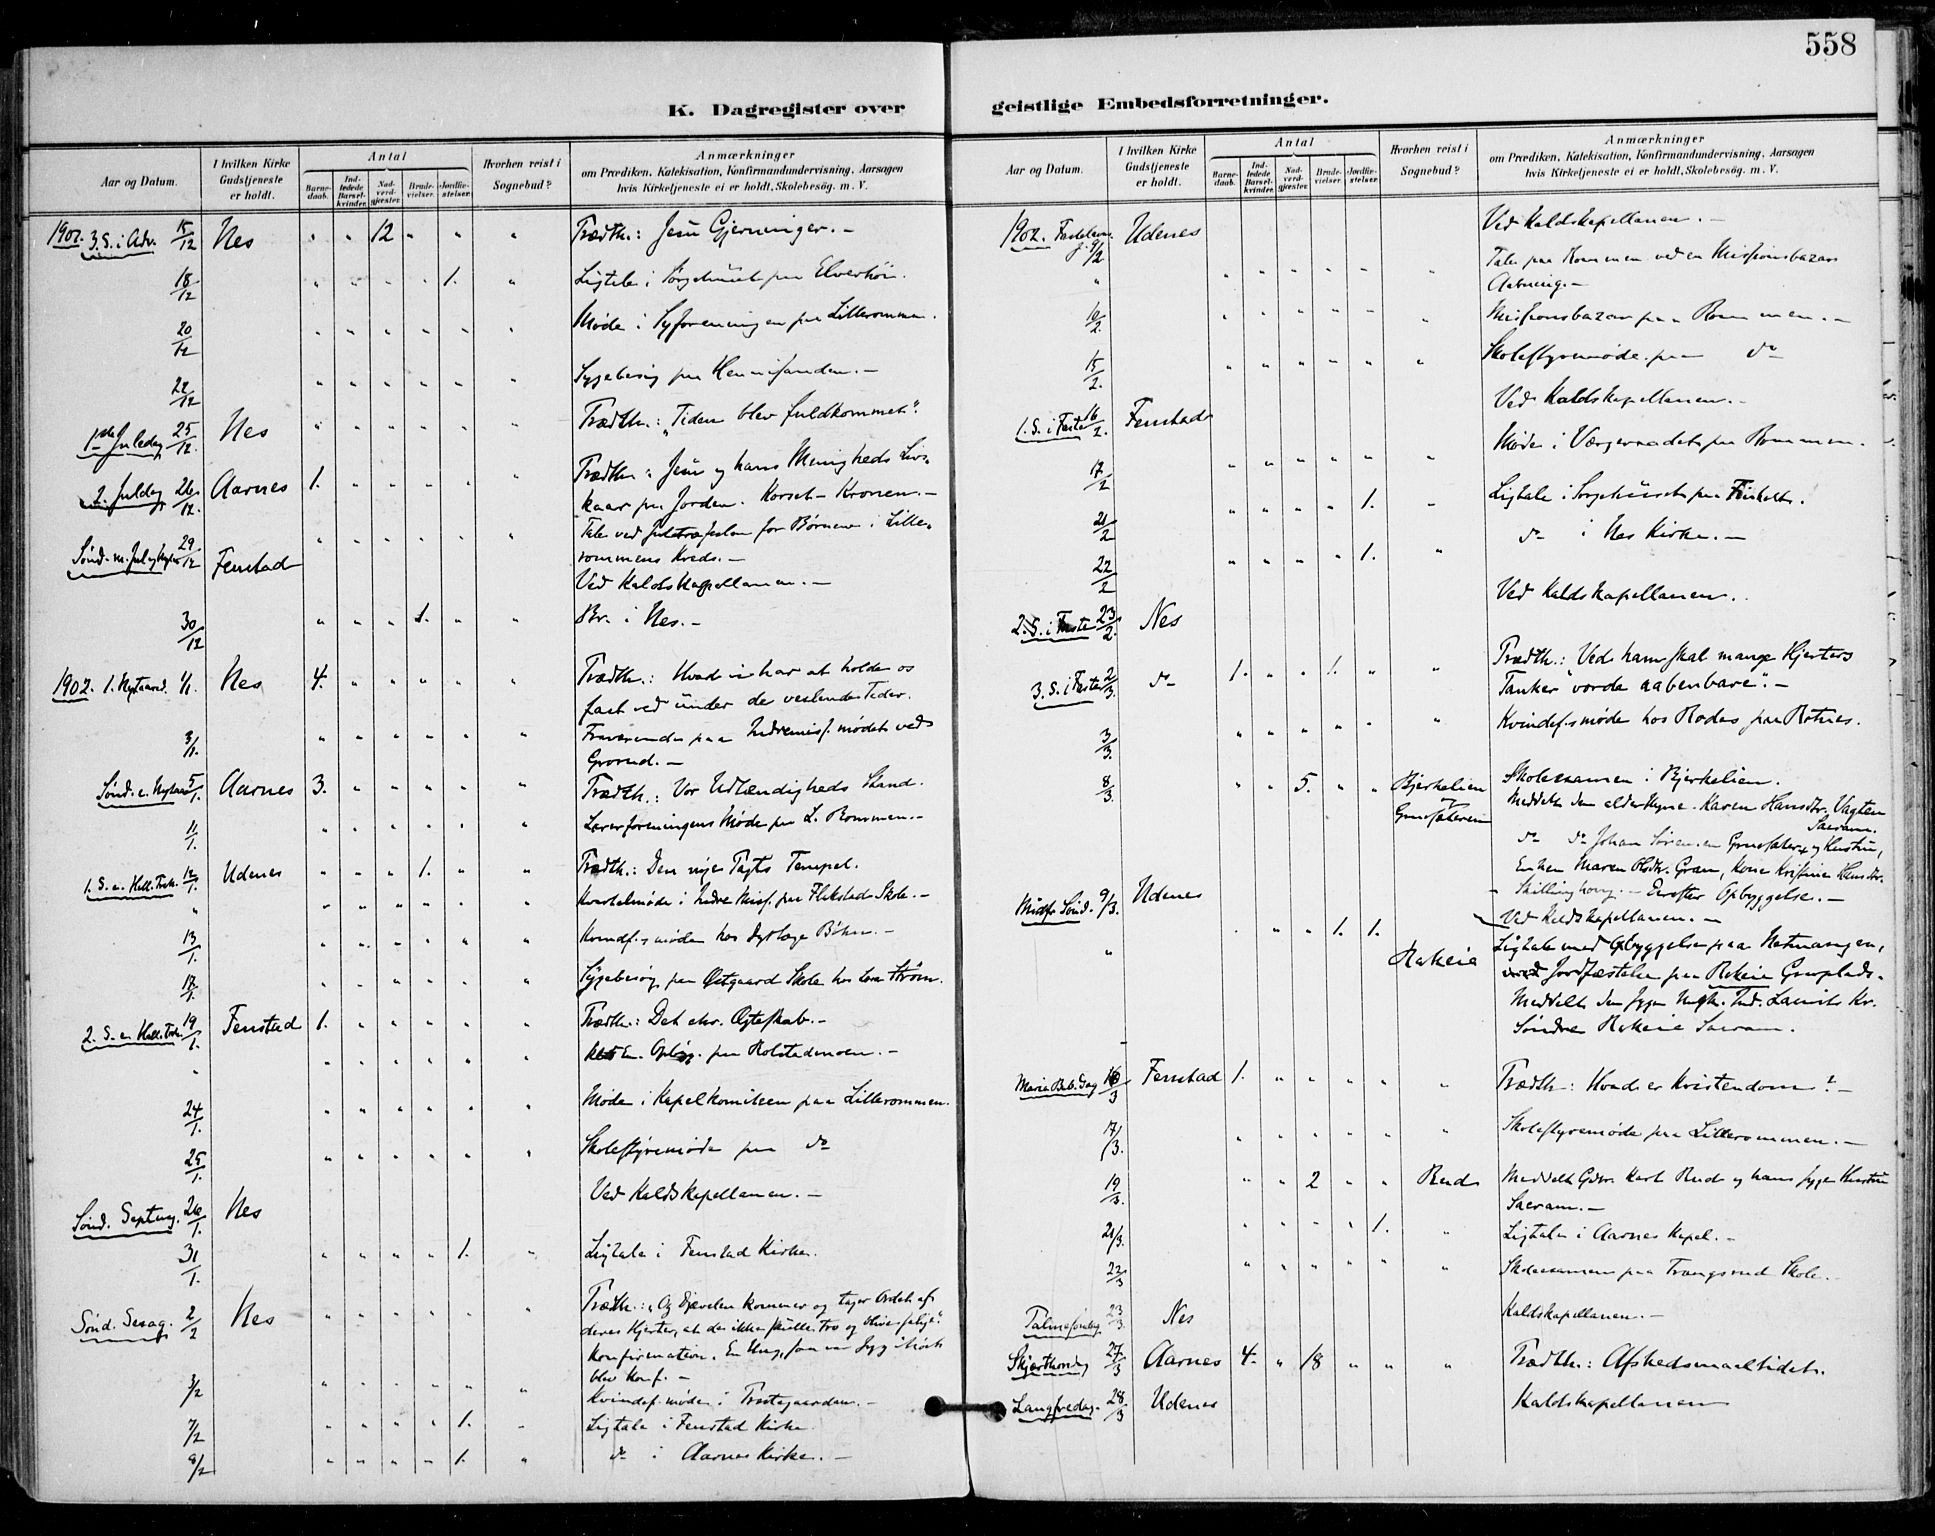 558
K. Dagregister over
geistlige Embedsforretninger.
Aar og Datum.
I hvilken Kirke Gudstjeneste er holdt.
Antal
Barne-daab.
Ind-ledede Barsel-kvinder.
Nad-verd-gjæster.
Brude-vielser.
Jordfæ-stelser.
Hvorhen reist i Sognebud?
Anmærkninger
om Prædiken, Katekisation, Konfirmandundervisning, Aarsagen
hvis Kirketjeneste ei er holdt, Skolebesög. m. V.
3. S. i Adv. 15/12 Nes " " 12 " " " Trædth.: Jesu Gjerninger. –
18/12 " " " " 1. " Ligtale i Sørgehuset paa Elverhöi.
20/12 " " " " " " Møde i Syforeningen paa Lillerommen.
22/12 " " " " " " Sygebesög paa
1ste Juledag 25/12 Nes " " " " " " Trædth.: "Tiden blev fuldkommet".
2. Juledag 26/12 Aarnes 1. " " " " " Trædth.: Jesu og hans Menigheds Livs-
kaar paa Jorden. Korset – Kronen. –
29/12 Fenstad " " " " " " Tale ved Juletræfesten for Børnene i Lille-
rommens Kreds. –
Ved Kaldskapellanen. –
30/12 " " " 1. " " Br. i Nes. –
1902. 1. Nytaarsd. 1/1 Nes 4. " " " " " Trædth.: Hvad vi har at holde os
fast ved under de vexlende Tider.
3/1. " " " " " " Fraværende paa Indremisf. mødet ved
Grorud. –
Sønd. e. Nytaar 5/1. Aarnes 3. " " " " " Trædth.: Vor Udlændigheds Stand.
11/1. " " " " " " Lærerforeningens Møde paa L. Rommen. –
1. S. e. Hell. Trek. 12/1. Udenes " " " 1. " " Trædth.: Den nye Pagts Tempel.
" " " " " " " Kvartalmøde i Indre Misf. paa Flikstad Skole. –
13/1. " " " " " " Kvindef.s møde hos Dyrlæge Bøhn. –
17/1. " " " " " " Sygebesög paa Østgaard Skole hos Lærer Strøm.
2. S. e. Hell. Trek. 19/1. Fenstad 1. " " " " " Trædth.: Det chr. Ægteskab. –
" " " " " " " Opbygg. paa Rolstadmoen. –
24/1. " " " " " " Møde i Kapelkomiteen paa Lillerommen.
25/1. " " " " " " Skolestyremøde paa do
Sønd. Septuag. 26/1. Nes Ved Kaldskapellanen. –
31/1. " " " " 1. " Ligtale i Fenstad Kirke.
Sønd. Sexag. 2/2 Nes " " " " " " Trædth.: "Og Djævelen kommer og tager Ordet af
deres Hjerter, at de ikke skulle tro og blive salige".
Konfirmation. En Ung., som var syg i Høst
blev Konf. –
3/2 " " " " " " Kvindef. møde i Prestegaarden. –
7/2 " " " " 1. " Ligtale i Fenstad Kirke.
8/2 " " " " 1. " do i Aarnes Kirke. –
Aar og Datum.
I hvilken Kirke Gudstjeneste er holdt.
Antal
Barne-daab.
Ind-ledede Barsel-kvinder.
Nad-verd-gjæster.
Brude-vielser.
Jordfæ-stelser.
Hvorhen reist i Sognebud?
Anmærkninger
om Prædiken, Katekisation, Konfirmandundervisning, Aarsagen
hvis Kirketjeneste ei er holdt, Skolebesög. m. V.
1902. Fastelavns 9/2 Udenes Ved Kaldskapellanen. –
" " " " " " " Tale paa Rommen ved en Missionsbazars
Aabning. –
10/2. " " " " " " Missionsbazar paa Rommen. –
15/2. " " " " " " Skolestyremøde paa do
1. S. i Faste 16/2. Fenstad Ved Kaldskapellanen. –
17/2 " " " " " " Møde i Værgeraadet paa Rommen.
21/2 " " " " 1. " Ligtale i Sørgehuset paa
22/2 " " " " 1. " do i Nes Kirke. –
2. S. i Faste 23/2. Nes Ved Kaldskapellanen.
3. S. i Faste 2/3. do 1. " " 1. " " Trædth.: Ved ham skal mange Hjerters
Tanker "vorde aabenbare". –
3/3. " " " " " " Kvindef.s møde hos Rodes paa Rotnes.
8/3. " " 5. " " Bjerkelien Skolexamen i Bjerkelien.
Meddelte den Karen Hansdtr. Vagten
Sacram.
do do Johan Sørensen og Hustru,
Enken Maren Olsdtr. Gran, Kone Kristine Hansdtr.
– Derefter Opbyggelse. –
Midfa. Sønd. 9/3. Udenes Ved Kaldskapellanen. –
" " " 1. 1. Rakeie Ligtale med Opbyggelse paa
Jordfæstelse paa Rakeie Gravplads.
Meddelte den syge Ungk. Ind. Laurits Kr.
Søndre Rakeie Sacram.
Maria Beb. Dag 16/3 Fenstad 1. " " " " " Trædth.: Hvad er Kristendom? –
17/3. " " " " " " Skolestyremøde paa Lillerommen. –
19/3. " " 2 " " Rud Meddelte Gdbr. Karl Rud og hans syge Hustru
Sacram. –
21/3. " " " " 1. " Ligtale i Aarnes Kapel. –
22/3 " " " " " " Skoleexamen paa Trangsrud Skole. –
Palmesøndag 23/3. Nes Kaldskapellanen. –
Skjærthorsdag 27/3 Aarnes 4. " 18 " " " Trædth.: Afskedsmaaltidet.
Langfredag. 28/3 Udenes Kaldskapellanen